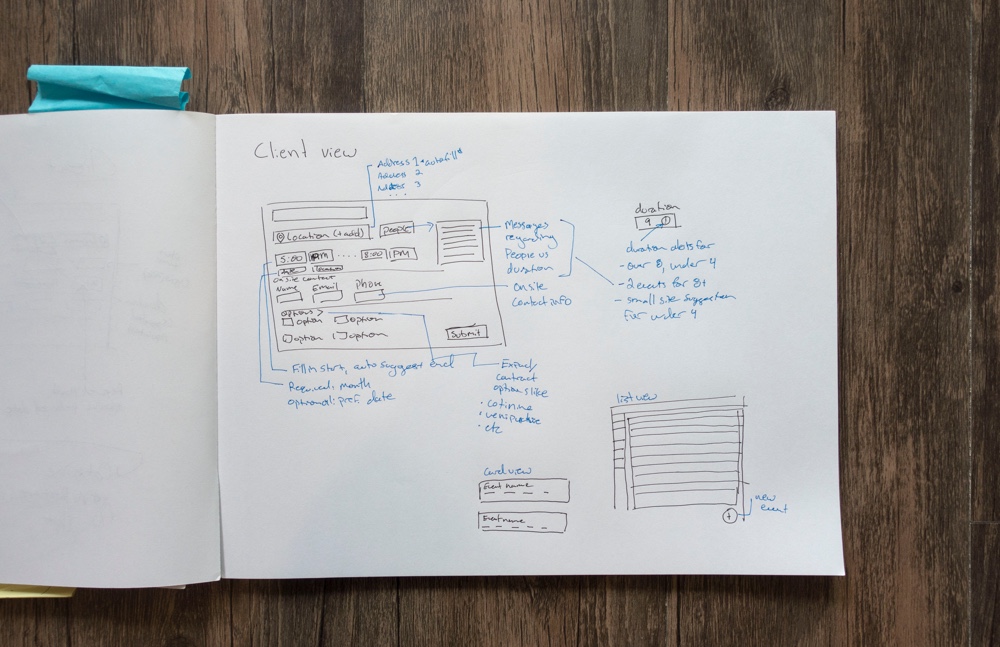 Client view
Address 1 *autofill*
Address 2
Address 3
...
Location (+add)
People
5:00 PM .... 8:00 PM
Date
onsite contact
Name Email Phone
options >
option option
option option
Submit
Messages
regarding
People vs
duration
onsite
contact info
Fill in start, auto suggest end
Required: month
optional: pref. date
Expand/
contract
options like
• cotinine
• venipuncture
• etc
duration
9
duration alerts for
- over 8, under 4
- 2 events for 8+
- small site suggestion
for under 4
list view
+
new
event
Card view
Event name
Event name